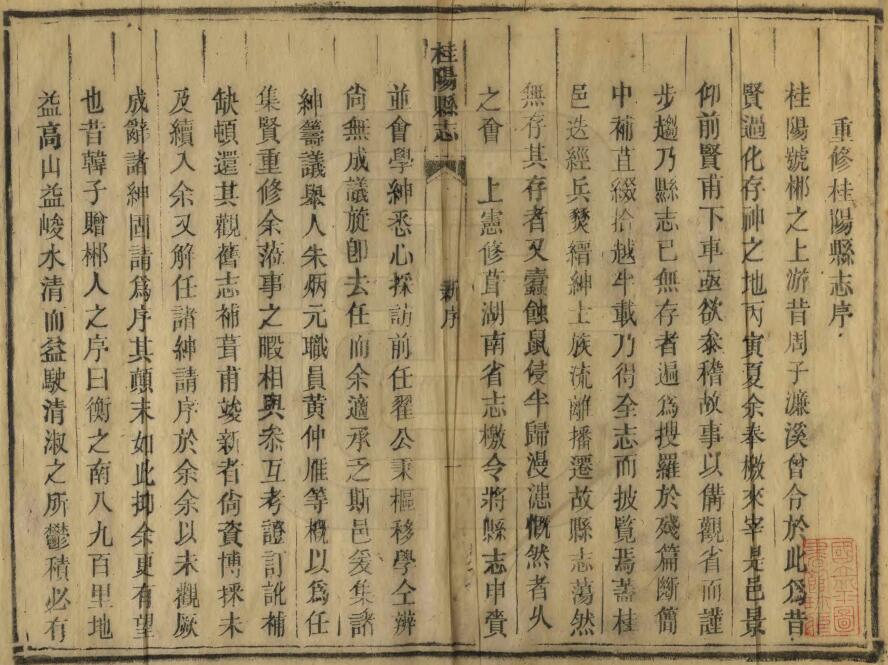 重修桂陽縣志序
桂陽號郴之上游昔周子濂溪曾令於此爲昔
賢過化存神之地丙寅夏余奉檄來宰是邑景
仰前賢甫下車亟欲叅稽故事以備觀省而謹
步趨乃縣志已無存者遍爲搜羅於殘篇斷簡
中補苴綴拾越半載乃得全志而披覧焉蓋桂
邑迭經兵燹縉紳士族流離播遷故縣志蕩然
無存其存者又蠹蝕鼠侵半歸漫漶慨然者久
之會 上憲修葺湖南省志檄令將縣志申賫
桂陽縣志
新序
一
並會學紳悉心採訪前任翟公秉樞移學仝辦
尙無成議旋卽去任而余適承乏斯邑爰集諸
紳籌議舉人朱炳元職員黃仲雁等概以爲任
集賢重修余蒞事之暇相與叅互考證訂訛補
缺頓還其觀舊志補葺甫竣新者尙資博採未
及續入余又解任諸紳請序於余余以未觀厥
成辭諸紳固請爲序其顛末如此抑余更有望
也昔韓子贈郴人之序曰衡之南八九百里地
益高山益峻水清而益駛清淑之所鬱積必有